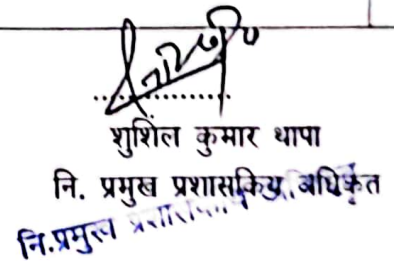 शुशिल कुमार थापा
नि. प्रमुख प्रशासकिय अधिकृत
नि.प्रमुख